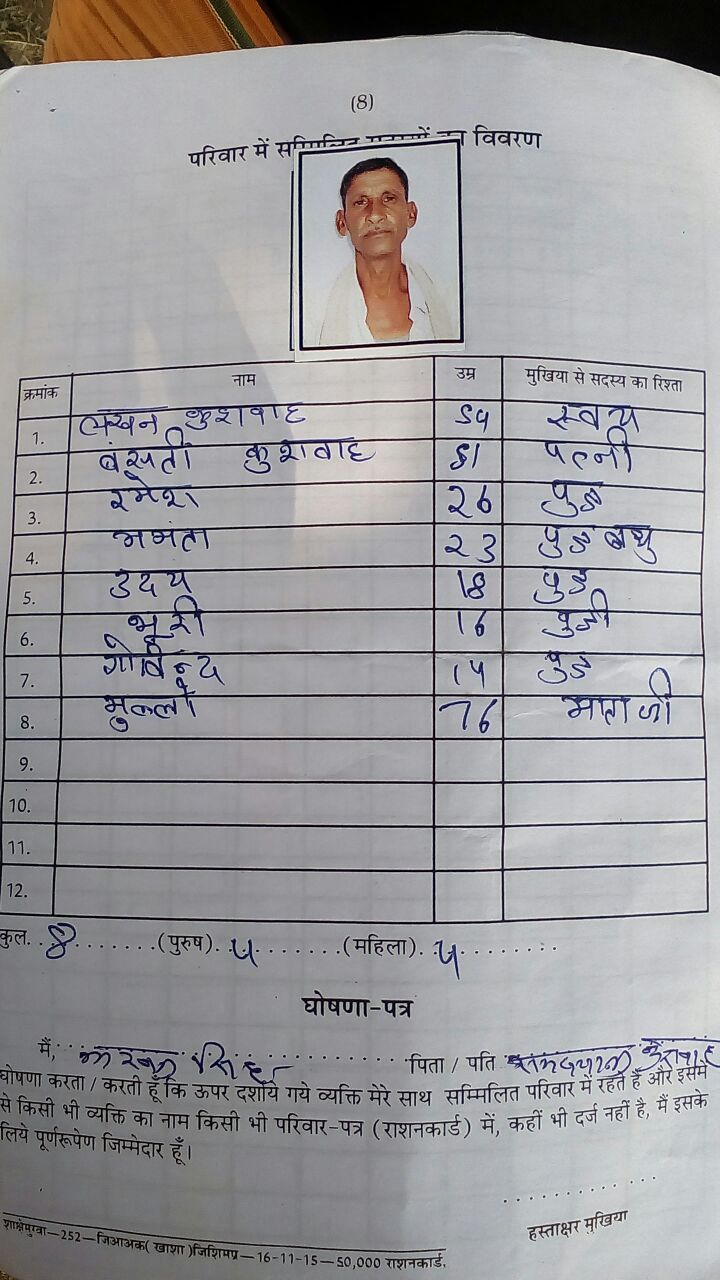 (8)
परिवार में सम्मिलित सदस्यों का विवरण
क्रमांक नाम उम्र मुखिया से सदस्य का रिश्ता
1. लखन कुशवाह 54 स्वय
2. बसती कुशवाह 51 पत्नी
3. रमेश 26 पुत्र
4. ममता 23 पुत्र बधु
5. उदय 18 पुत्र
6. भूरी 16 पुत्री
7. गोविन्द 14 पुत्र
8. मुल्लो 76 माता जी
9.
10.
11.
12.
कुल. . 8 . . . . . . . (पुरुष). . 4 . . . . . . . (महिला). . 4 . . . . . . . .
घोषणा-पत्र
मैं, सिंह पिता / पति रामदयाल कुशवाह
घोषणा करता / करती हूँ कि ऊपर दर्शाये गये व्यक्ति मेरे साथ सम्मिलित परिवार में रहते हैं और इसमें
से किसी भी व्यक्ति का नाम किसी भी परिवार-पत्र (राशनकार्ड) में, कहीं भी दर्ज नहीं है, मैं इसके
लिये पूर्णरूपेण जिम्मेदार हूँ।
हस्ताक्षर मुखिया
शाक्षेमुग्वा—252—जिआअक( खाशा )जिशिमप्र—16-11-15—50,000 राशनकार्ड.